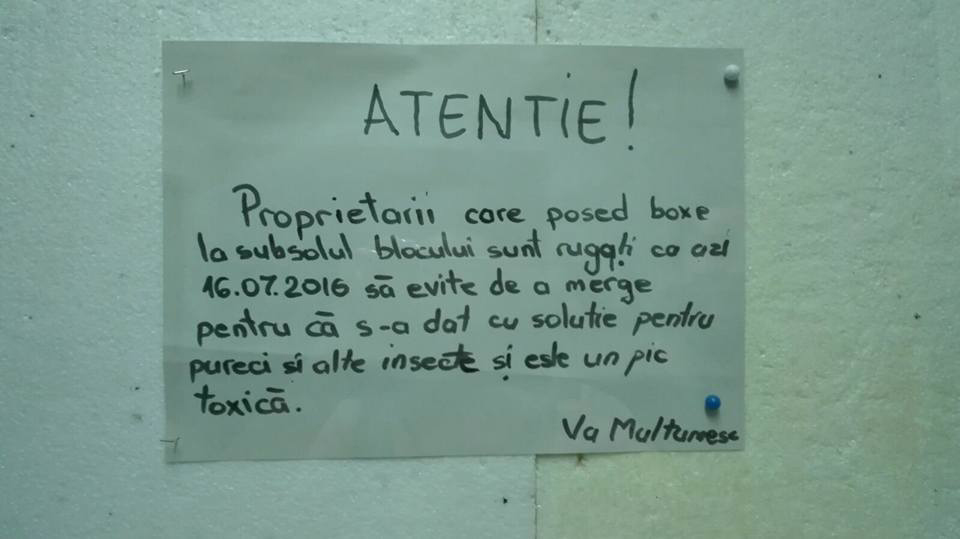 ATENTIE!
Proprietarii care posed boxe
la subsolul blocului sunt rugați ca azi
16.07.2016 să evite de a merge
pentru că s-a dat cu solutie pentru
pureci si alte insecte și este un pic
toxică.
Va Multumesc